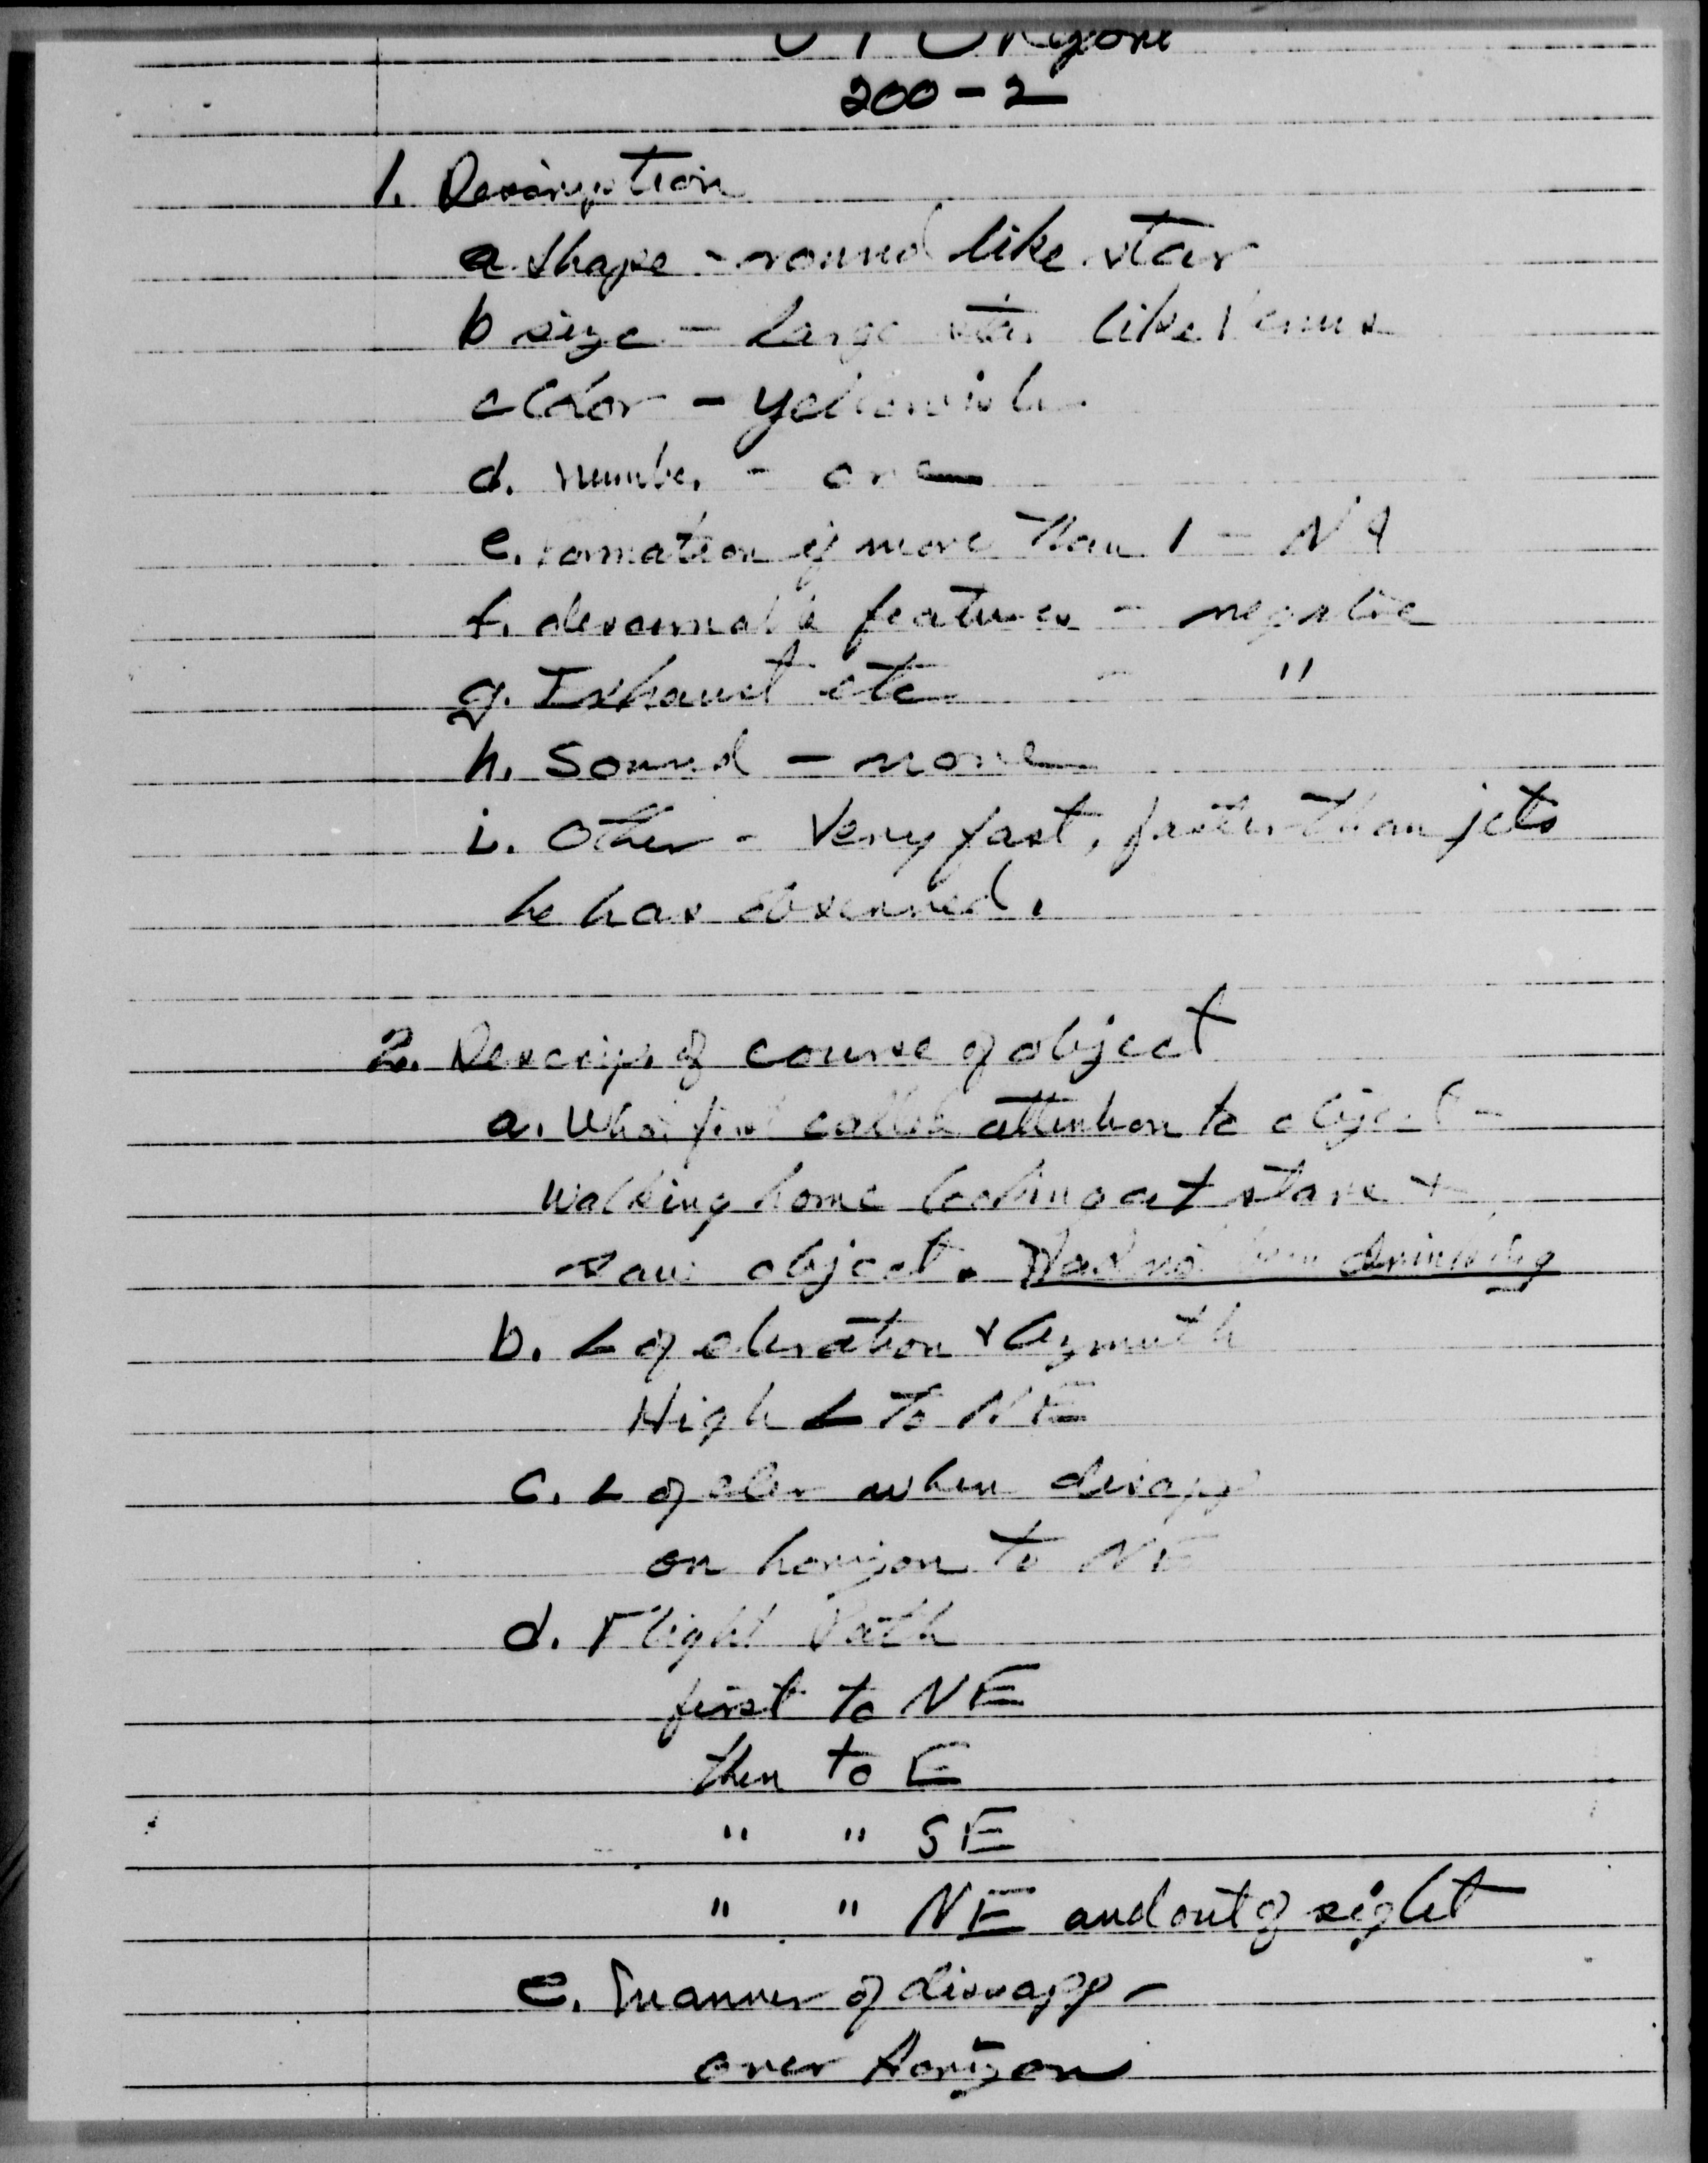 200-2
1. Description
a. shape - round like star
b size - large star like Venus
c Color - yellowish
d. number - one
e. Formation if more than 1 - NA
f. discernable features - negative
g. Exhaust etc - "
h. Sound - none
i. Other - Very fast, faster than jets
he has observed.
2. Descrip. of course of object
a. What first called attention to object -
Walking home looking at stars +
saw object. Had not been drinking
b. ∠ of elevation & Azmuth
High ∠ to NE
c. ∠ of elev when disapp
on horizon to NE
d. Flight Path
first to NE
then to E
" " SE
" " NE and out of sight
e. Manner of dissapp -
over Horizon